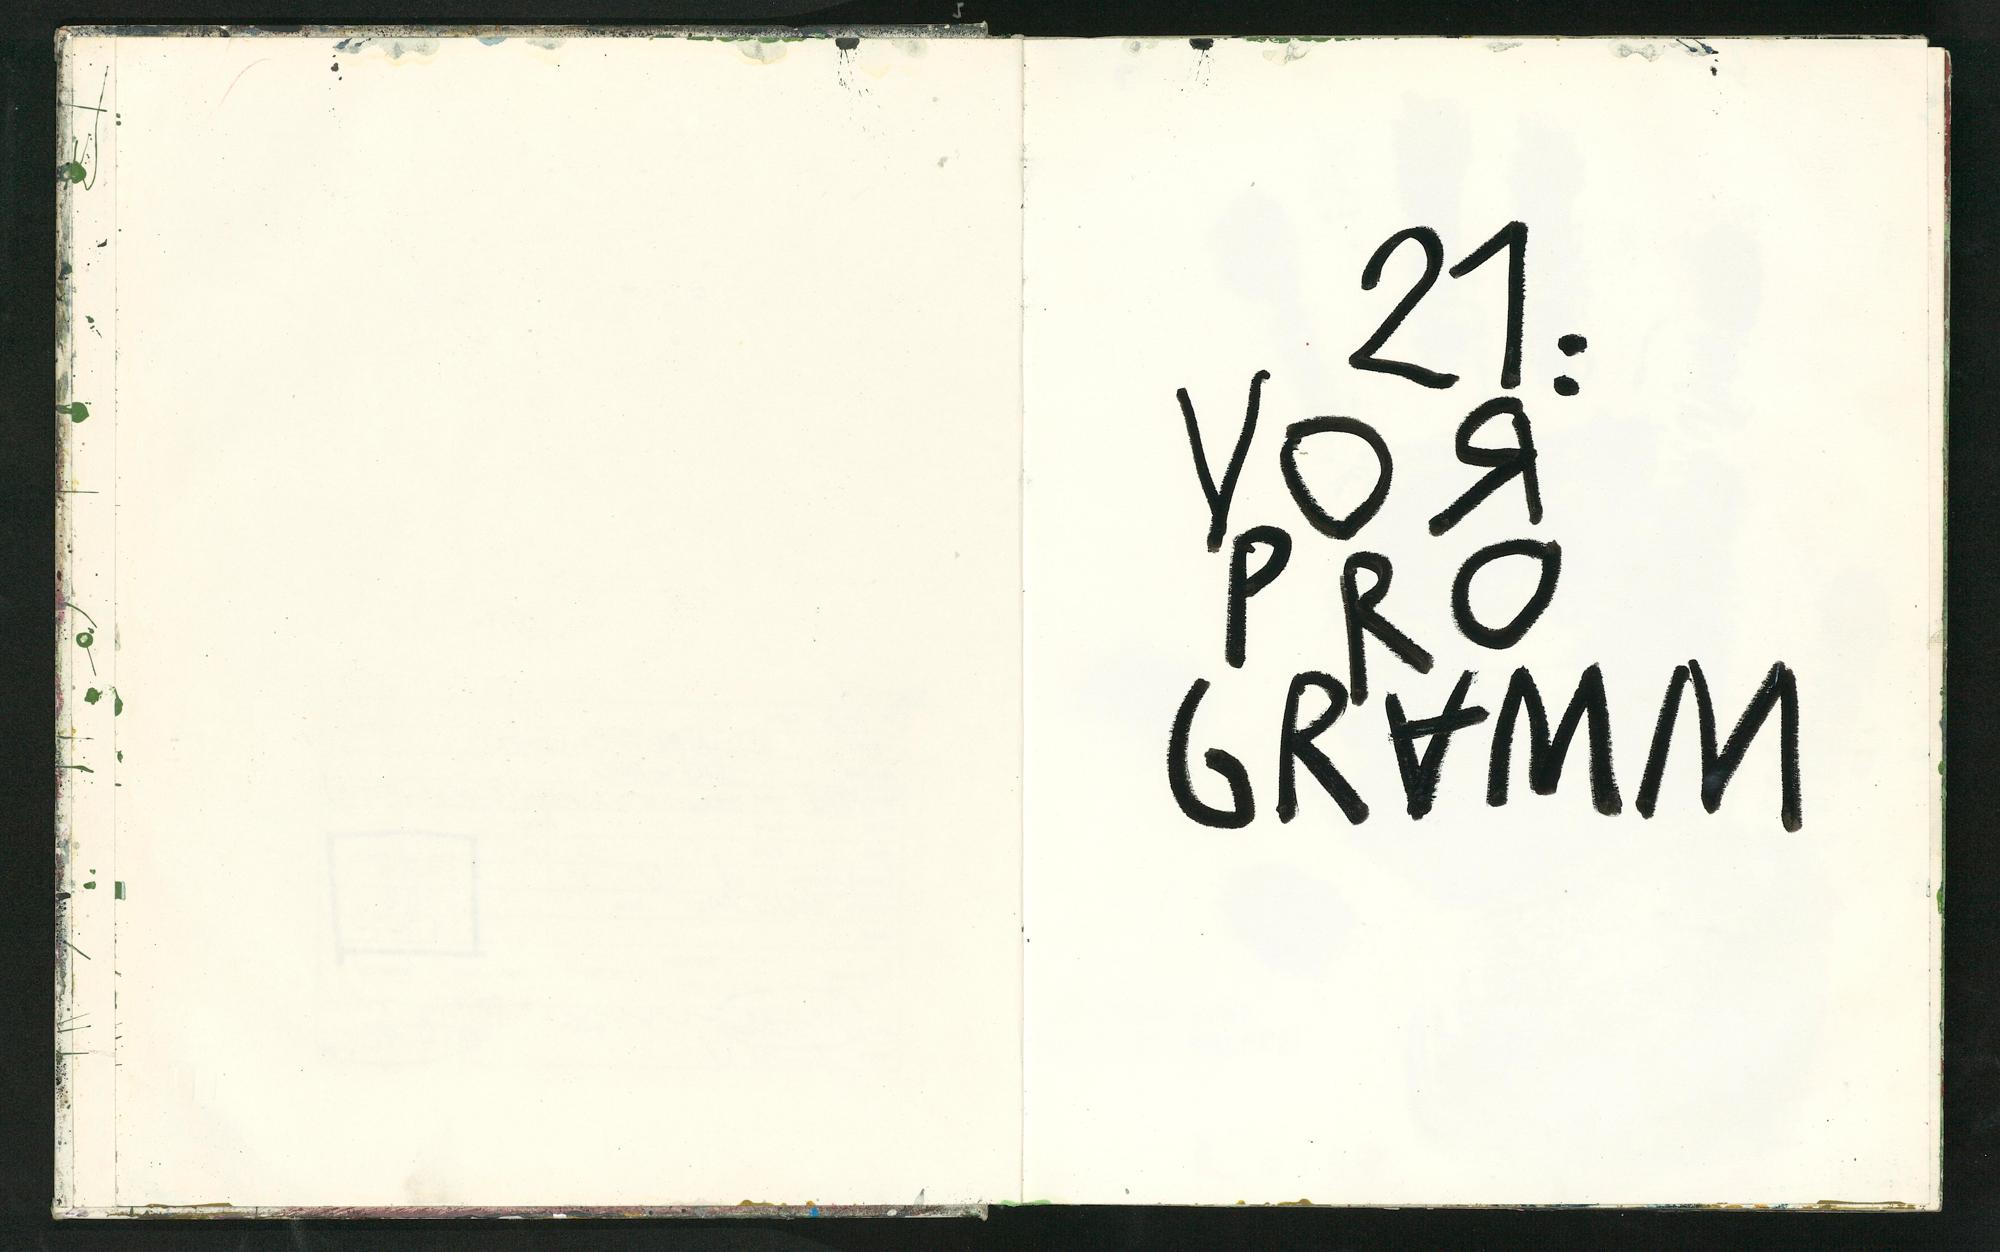 21:
VOЯ
PRO
GR∀MM